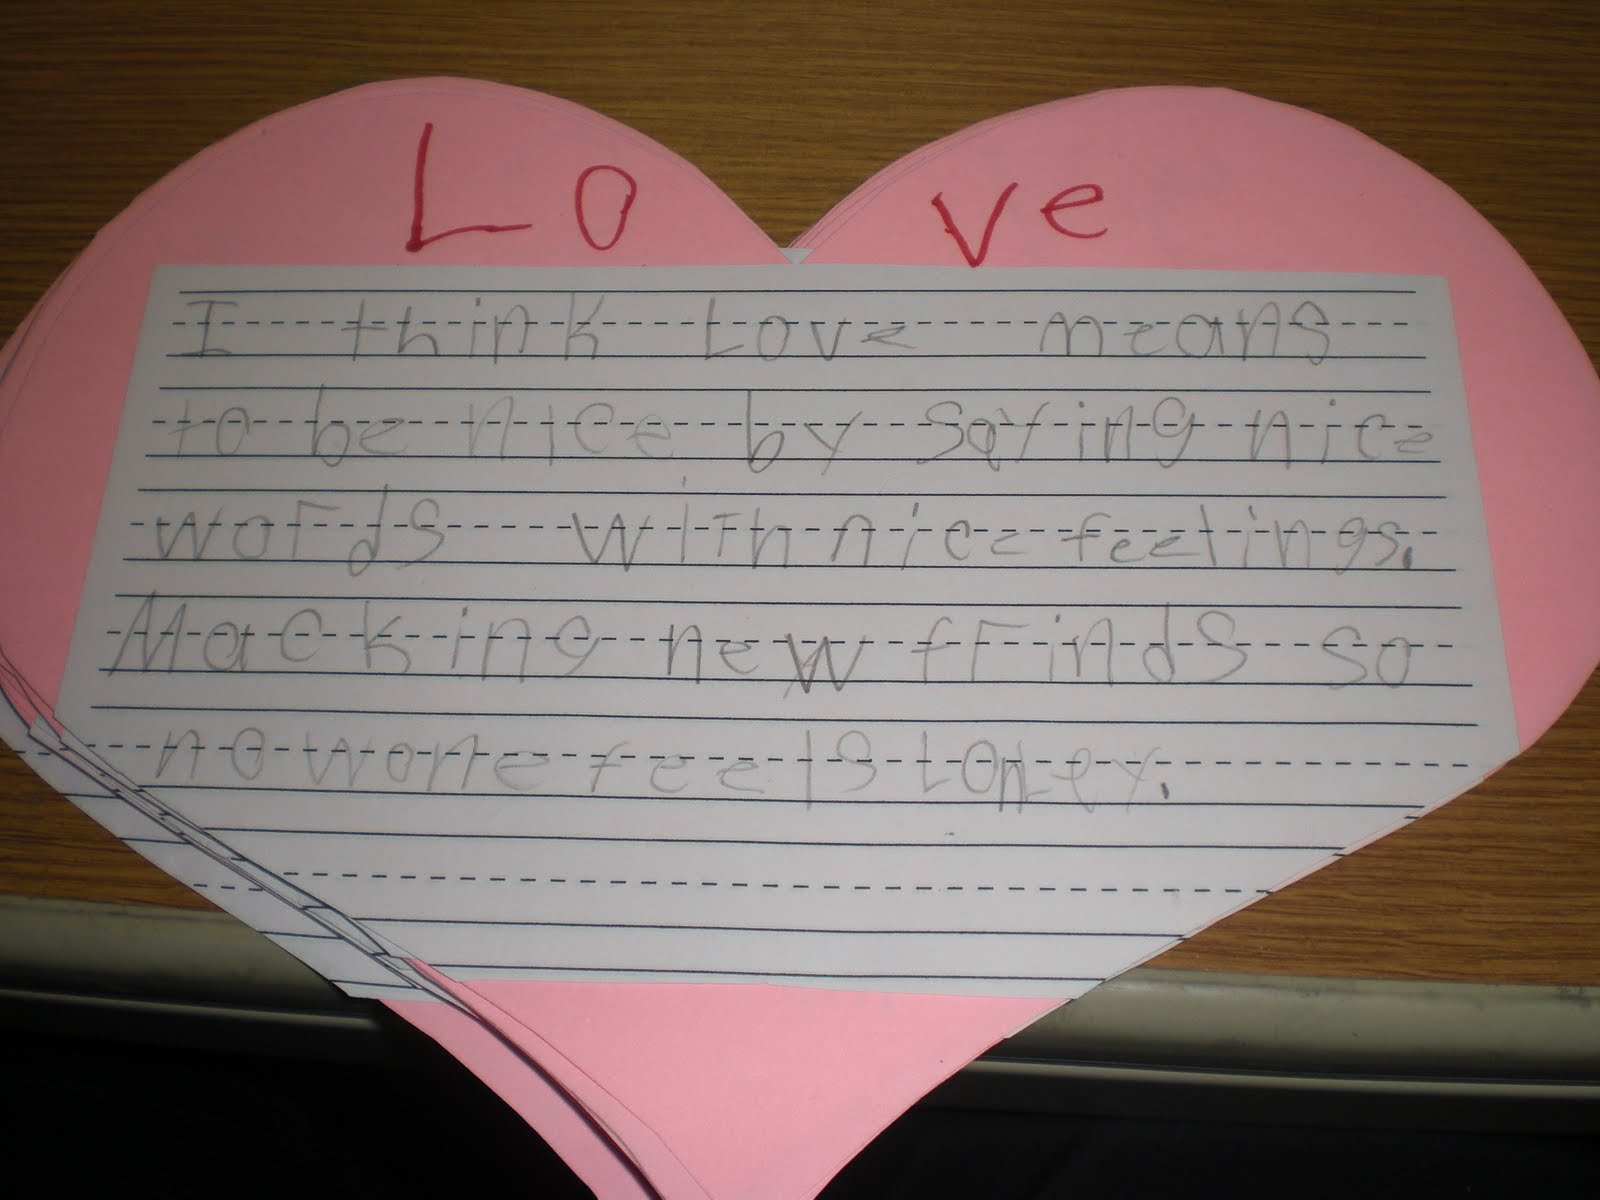 Love
I think Love means
to be nice by saying nice
words with nice feelings.
Macking new frinds so
no wone feels loney.